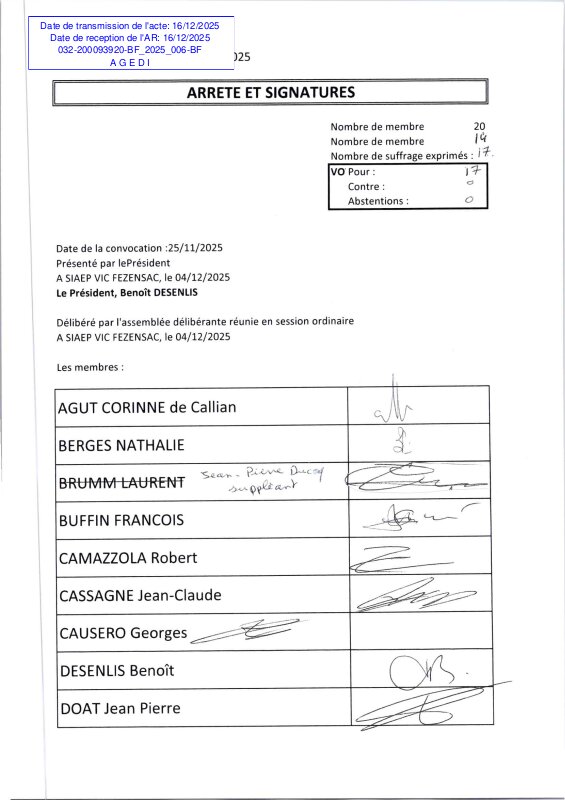 Date de transmission de l'acte: 16/12/2025
Date de reception de l'AR: 16/12/2025
032-200093920-BF_2025_006-BF
A G E D I
025
ARRETE ET SIGNATURES
Nombre de membre 20
Nombre de membre 14
Nombre de suffrage exprimés : 17.
VO Pour : 17
Contre : 0
Abstentions : 0
Date de la convocation :25/11/2025
Présenté par lePrésident
A SIAEP VIC FEZENSAC, le 04/12/2025
Le Président, Benoît DESENLIS
Délibéré par l'assemblée délibérante réunie en session ordinaire
A SIAEP VIC FEZENSAC, le 04/12/2025
Les membres :
AGUT CORINNE de Callian
BERGES NATHALIE
BRUMM LAURENT Jean-Pierre
suppléant
BUFFIN FRANCOIS
CAMAZZOLA Robert
CASSAGNE Jean-Claude
CAUSERO Georges
DESENLIS Benoît
DOAT Jean Pierre